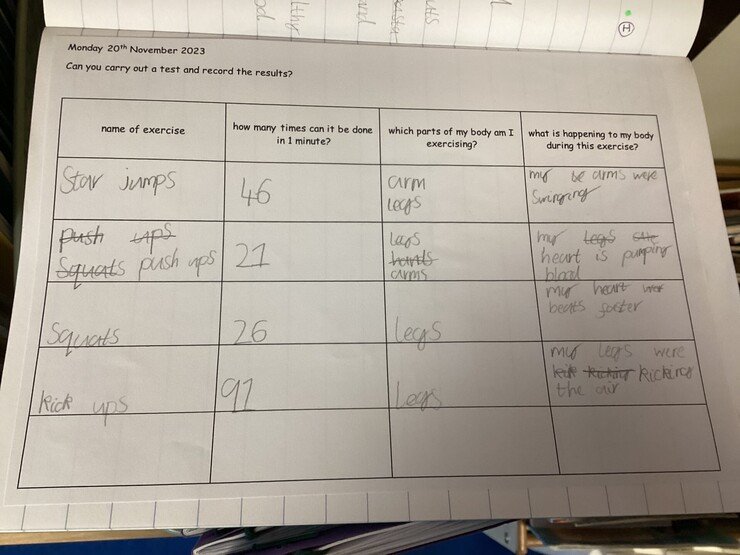 Monday 20th November 2023
Can you carry out a test and record the results?
name of exercise
how many times can it be done
in 1 minute?
which parts of my body am I
exercising?
what is happening to my body
during this exercise?
Star jumps
46
arm
legs
my be arms were
Swinging
push ups
Squats push ups
21
legs
hands
arms
my legs are
heart is pumping
blood
Squats
26
legs
my heart
beats faster
kick ups
91
legs
my legs were
kicking kicking
the air
H